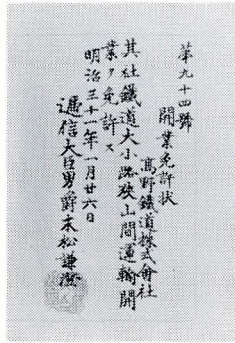 第九十四號
開業免許状
高野鐵道株式會社
其社鐵道大小路狹山間運輸開
業ヲ免許ス
明治三十一年一月廿六日
逓信大臣男爵末松謙澄